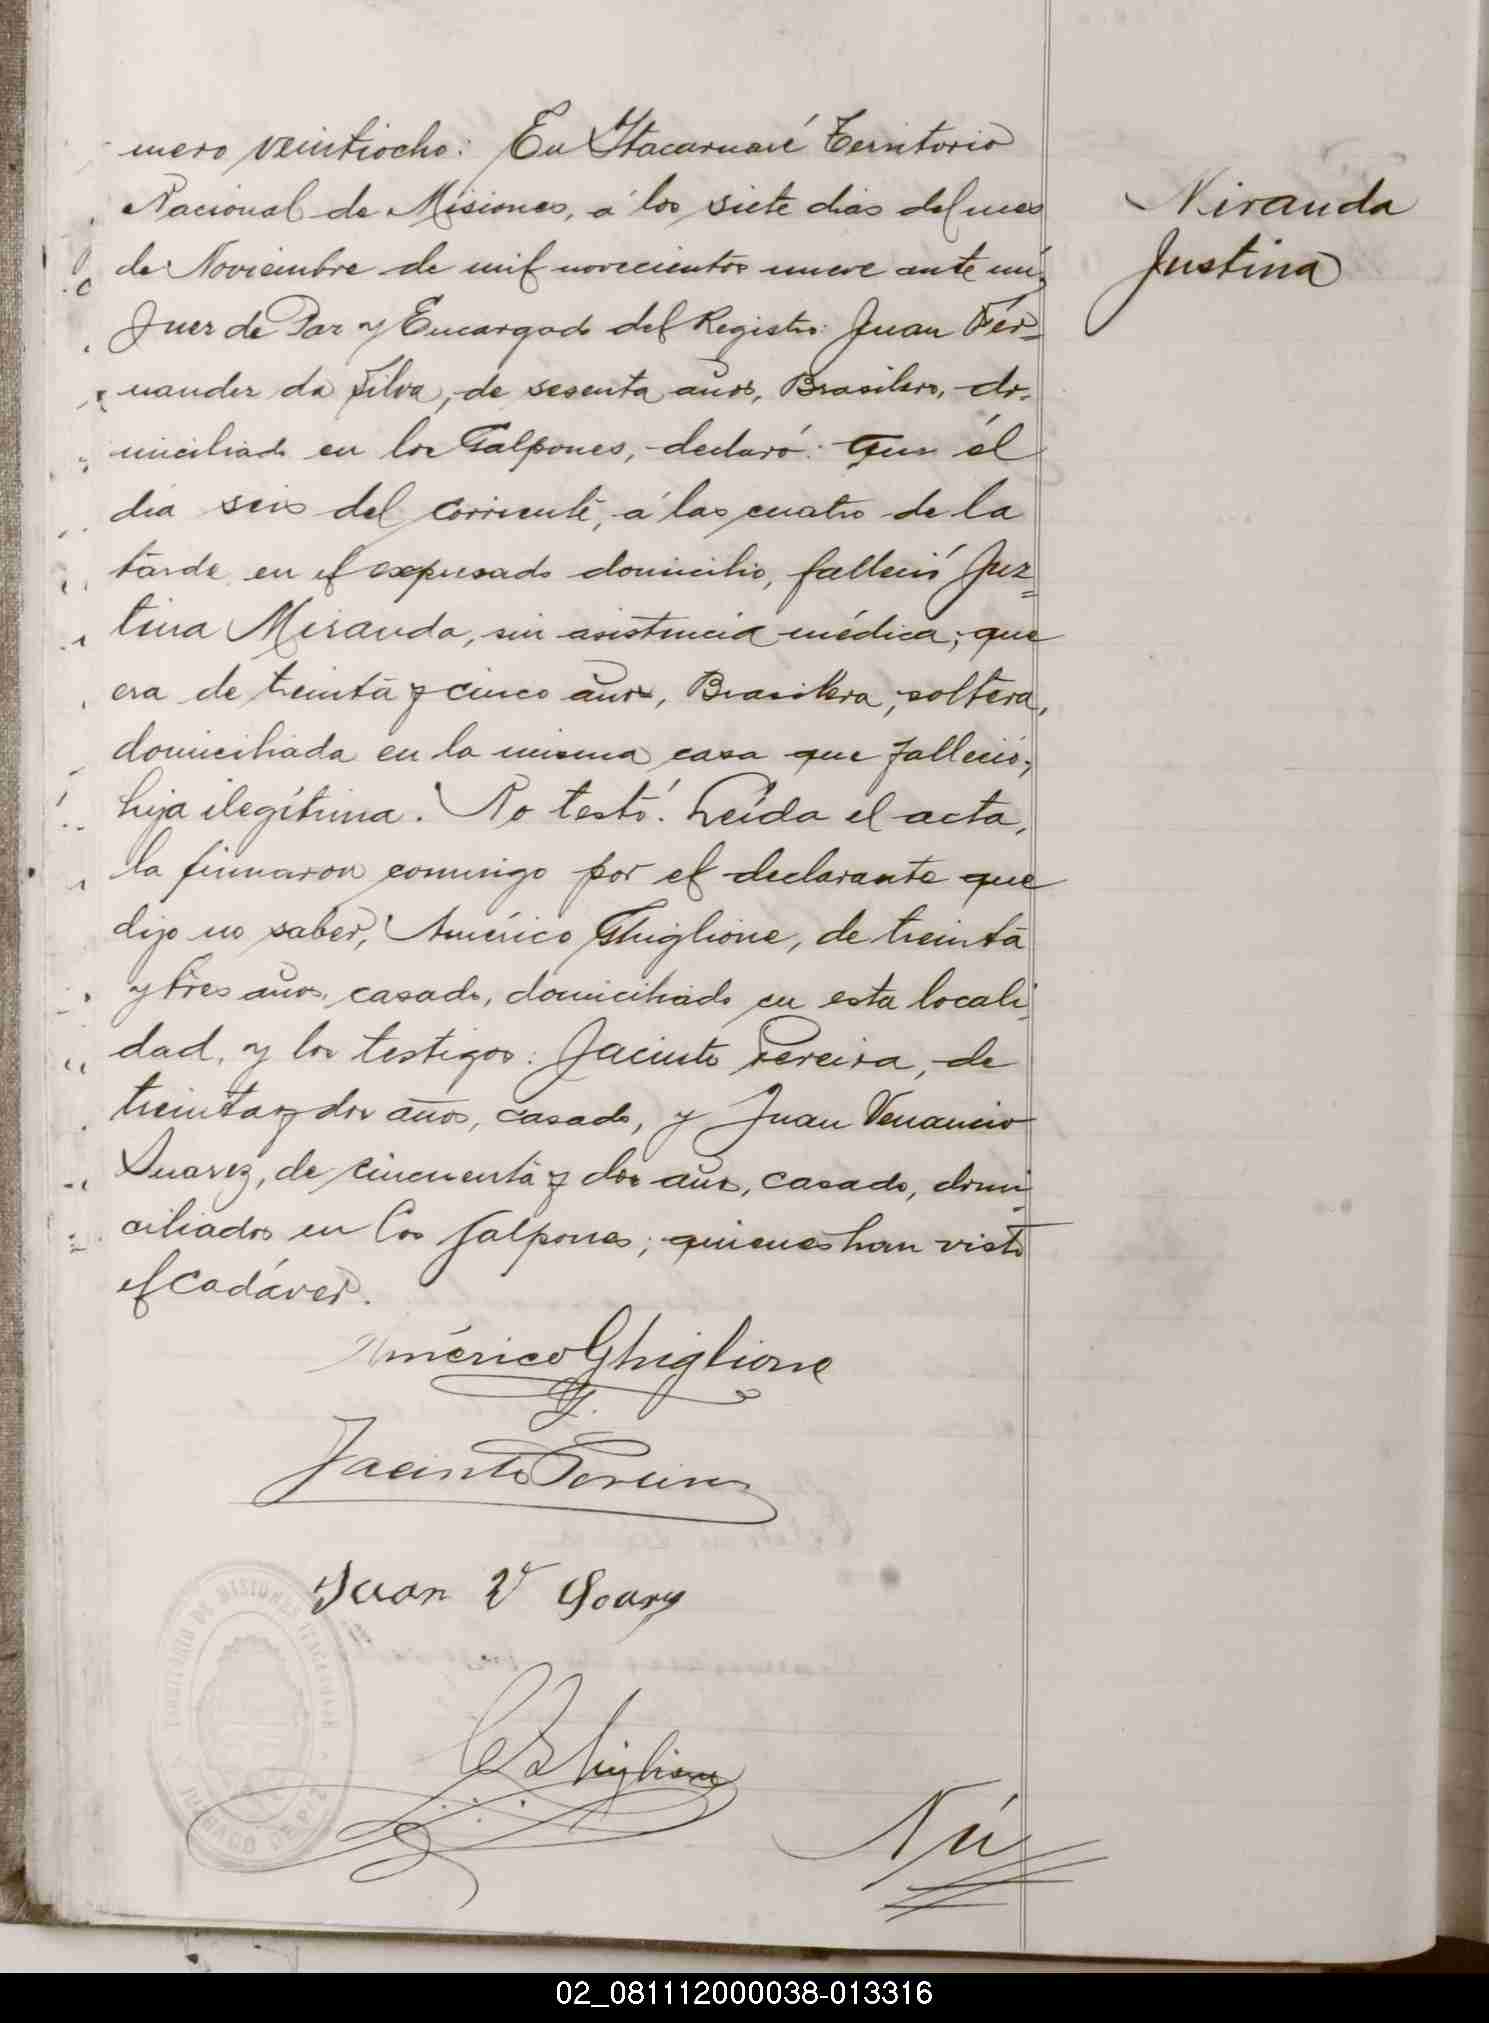 mero veintiocho: En Itacaruaré Territorio
Nacional de Misiones, á los siete dias del mes
de Noviembre de mil novecientos nueve ante mí,
Juez de Paz y Encargado del Registro: Juan Fer=
nandez da Silva, de sesenta años, Brasilero, do-
miciliado en los Galpones, declaró: Que él
dia seis del corriente, á las cuatro de la
tarde en el expresado domicilio, falleció Juz=
tina Miranda, sin asistencia médica; que
era de treinta y cinco años, Brasilera, soltera,
domiciliada en la misma casa que falleció;
hija ilegítima. No testó. Leída el acta,
la firmaron conmigo por el declarante que
dijo no saber, Américo Ghiglione, de treinta
y tres años, casado, domiciliado en esta locali
dad, y los testigos: Jacinto Pereira, de
treinta y dos años, casado, y Juan Venancio
Suarez, de cincuenta y dos años, casado, domi
ciliados en Los Galpones; quienes han visto
el cadáver.
Miranda
Justina
Américo Ghiglione
Jacinto Pereira
Juan V
Ghiglione
TERRITORIO DE MISIONES
JUZGADO DE PAZ
Nú
02_081112000038-013316